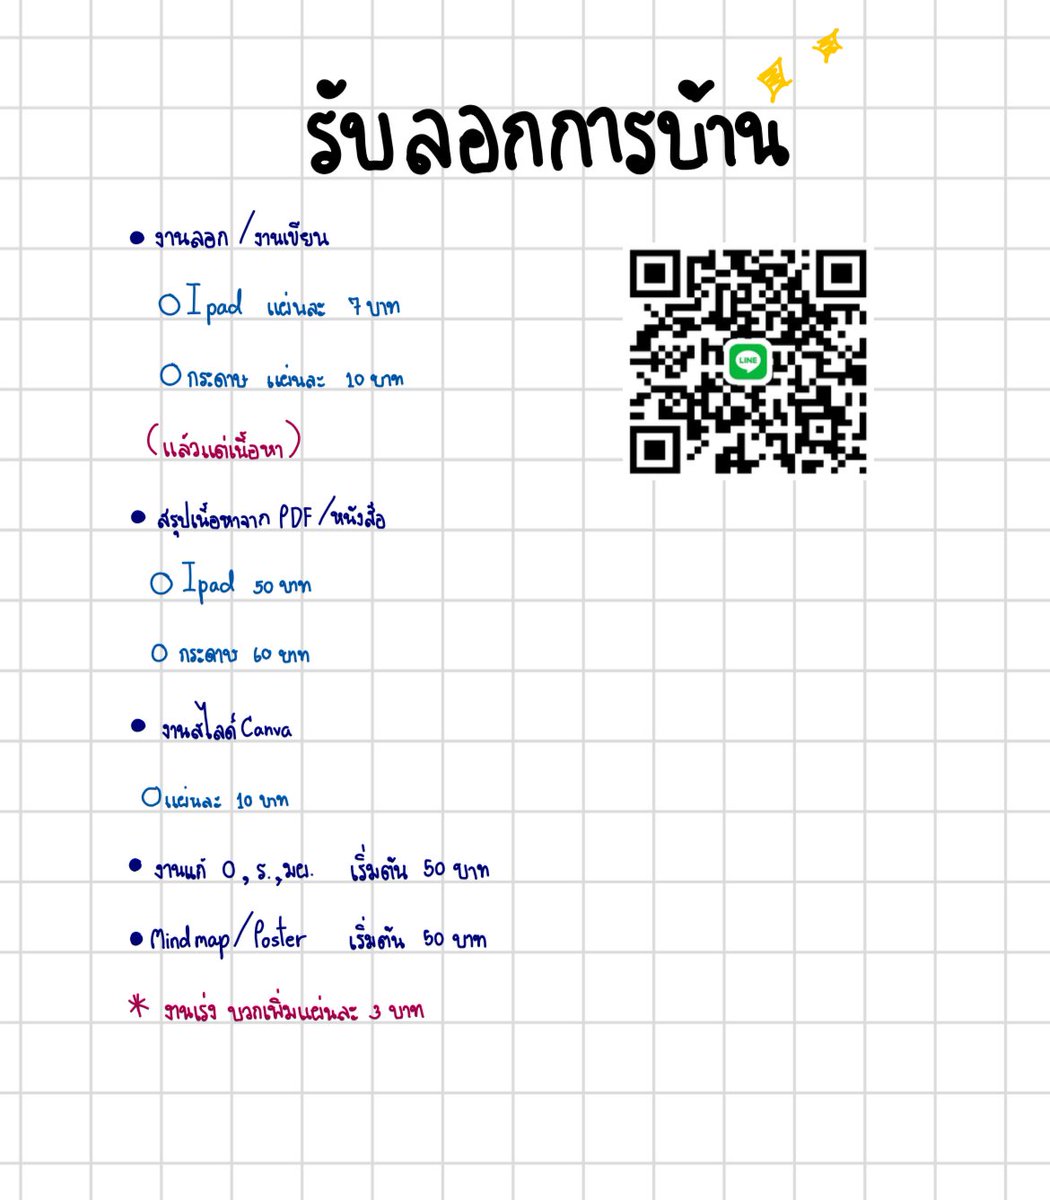 รับลอกการบ้าน
● งานลอก / งานเขียน
○ Ipad แผ่นละ 7 บาท
○ กระดาษ แผ่นละ 10 บาท
(แล้วแต่เนื้อหา)
LINE
● สรุปเนื้อหาจาก PDF / หนังสือ
○ Ipad 50 บาท
○ กระดาษ 60 บาท
● งานสไลด์ Canva
○ แผ่นละ 10 บาท
● งานแก้ 0 , ร. , มผ. เริ่มต้น 50 บาท
● Mindmap / Poster เริ่มต้น 50 บาท
* งานเร่ง บวกเพิ่มแผ่นละ 3 บาท